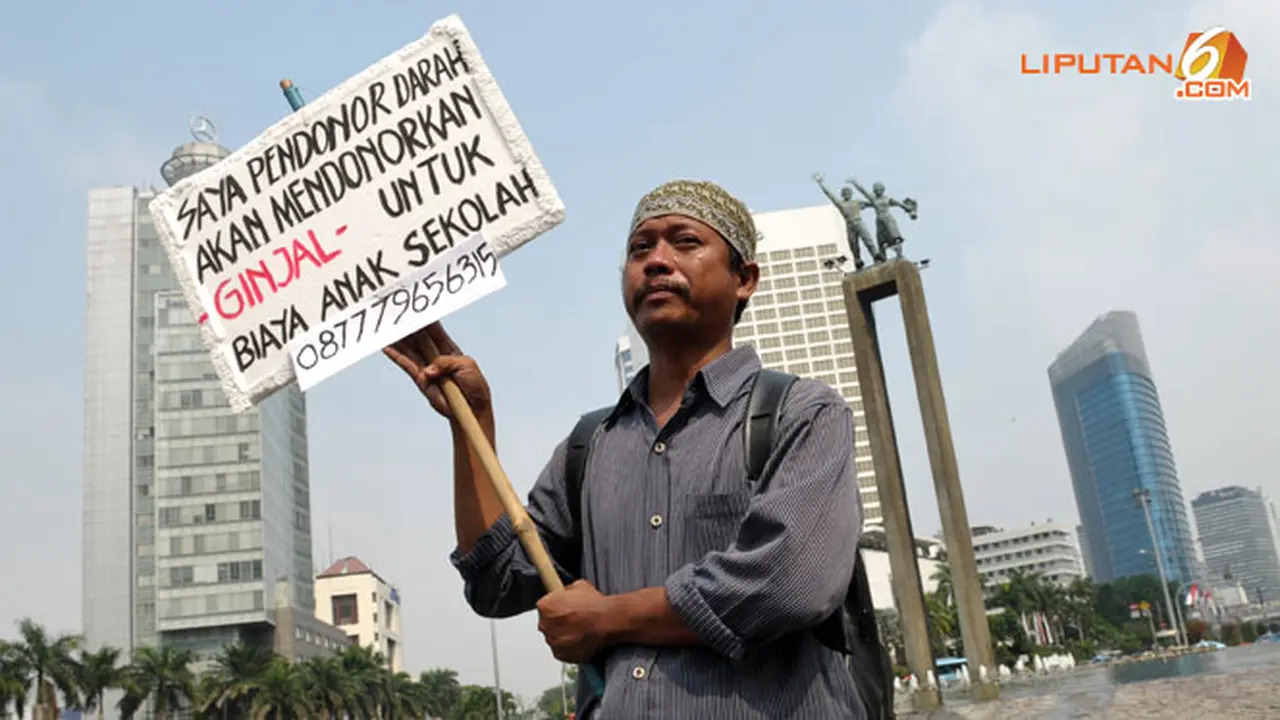 SAYA PENDONOR DARAH
AKAN MENDONORKAN
-GINJAL- UNTUK
BIAYA ANAK SEKOLAH
087779656315
LIPUTAN6
.COM